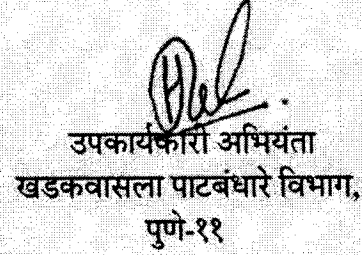 उपकार्यकारी अभियंता
खडकवासला पाटबंधारे विभाग,
पुणे-११